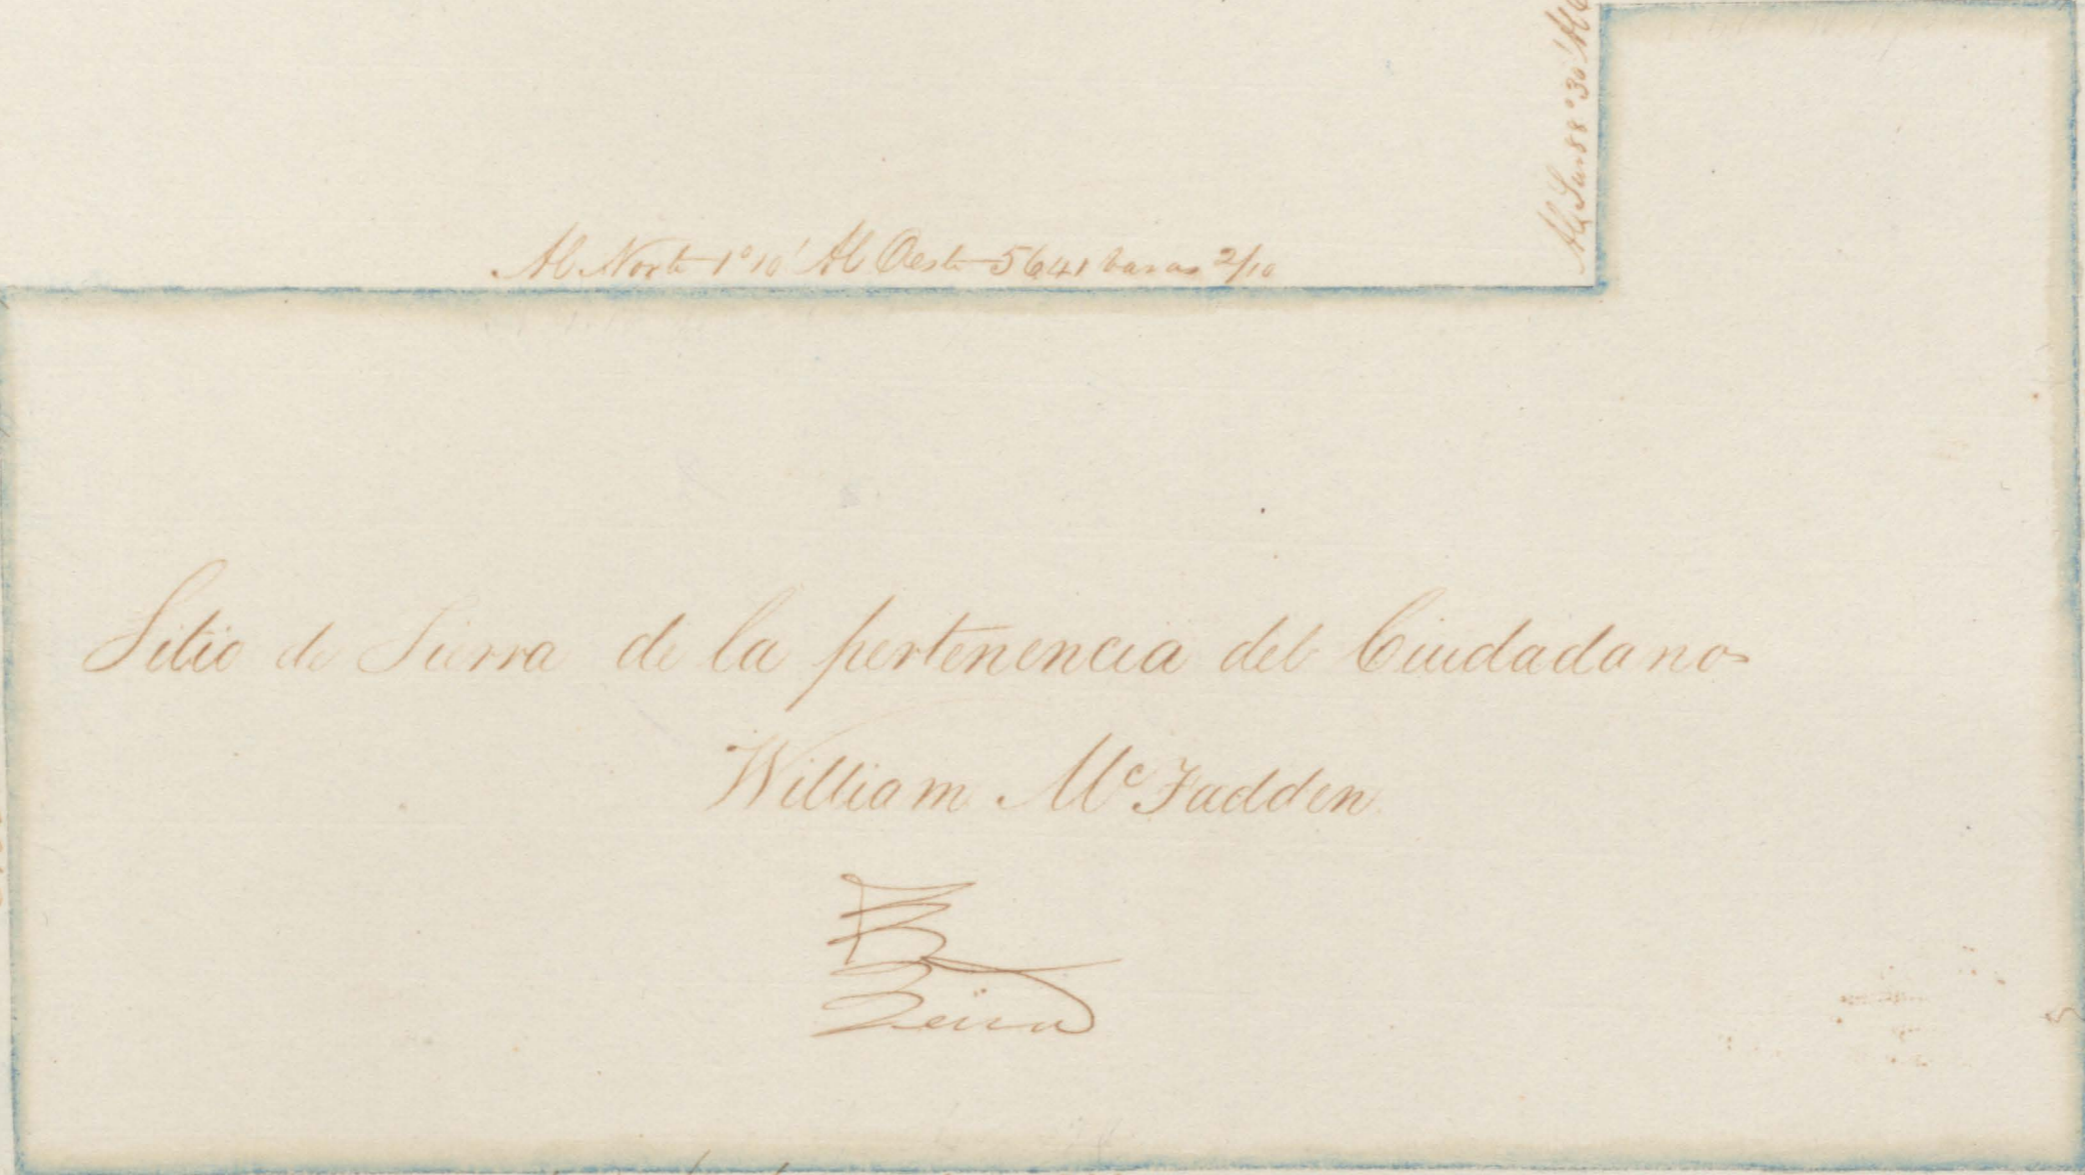 Al Norte 1° 10' Al Oeste 5641 baras 2/10
Al Sur 88° 30' Al
Sitio de Tierra de la pertenencia del Ciudadano
William McFadden